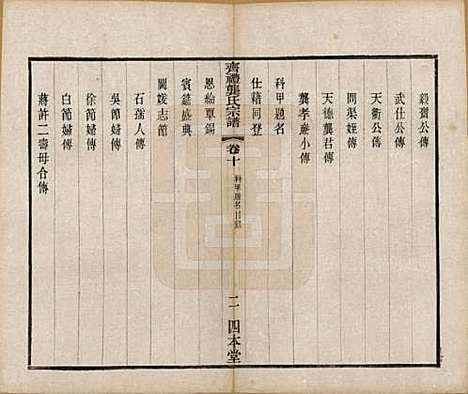 毅齋公傳
武仕公傳
天衢公傳
問渠姪傳
天德龔君傳
龔孝嚴小傳
科甲題名
仕籍同登
齊禮龔氏宗譜
卷十
科甲題名目錄
二
四本堂
恩綸覃錫
賓筵盛典
閫媛志範
石孺人傳
吳節婦傳
徐節婦傳
白節婦傳
蔣許二壽母合傳